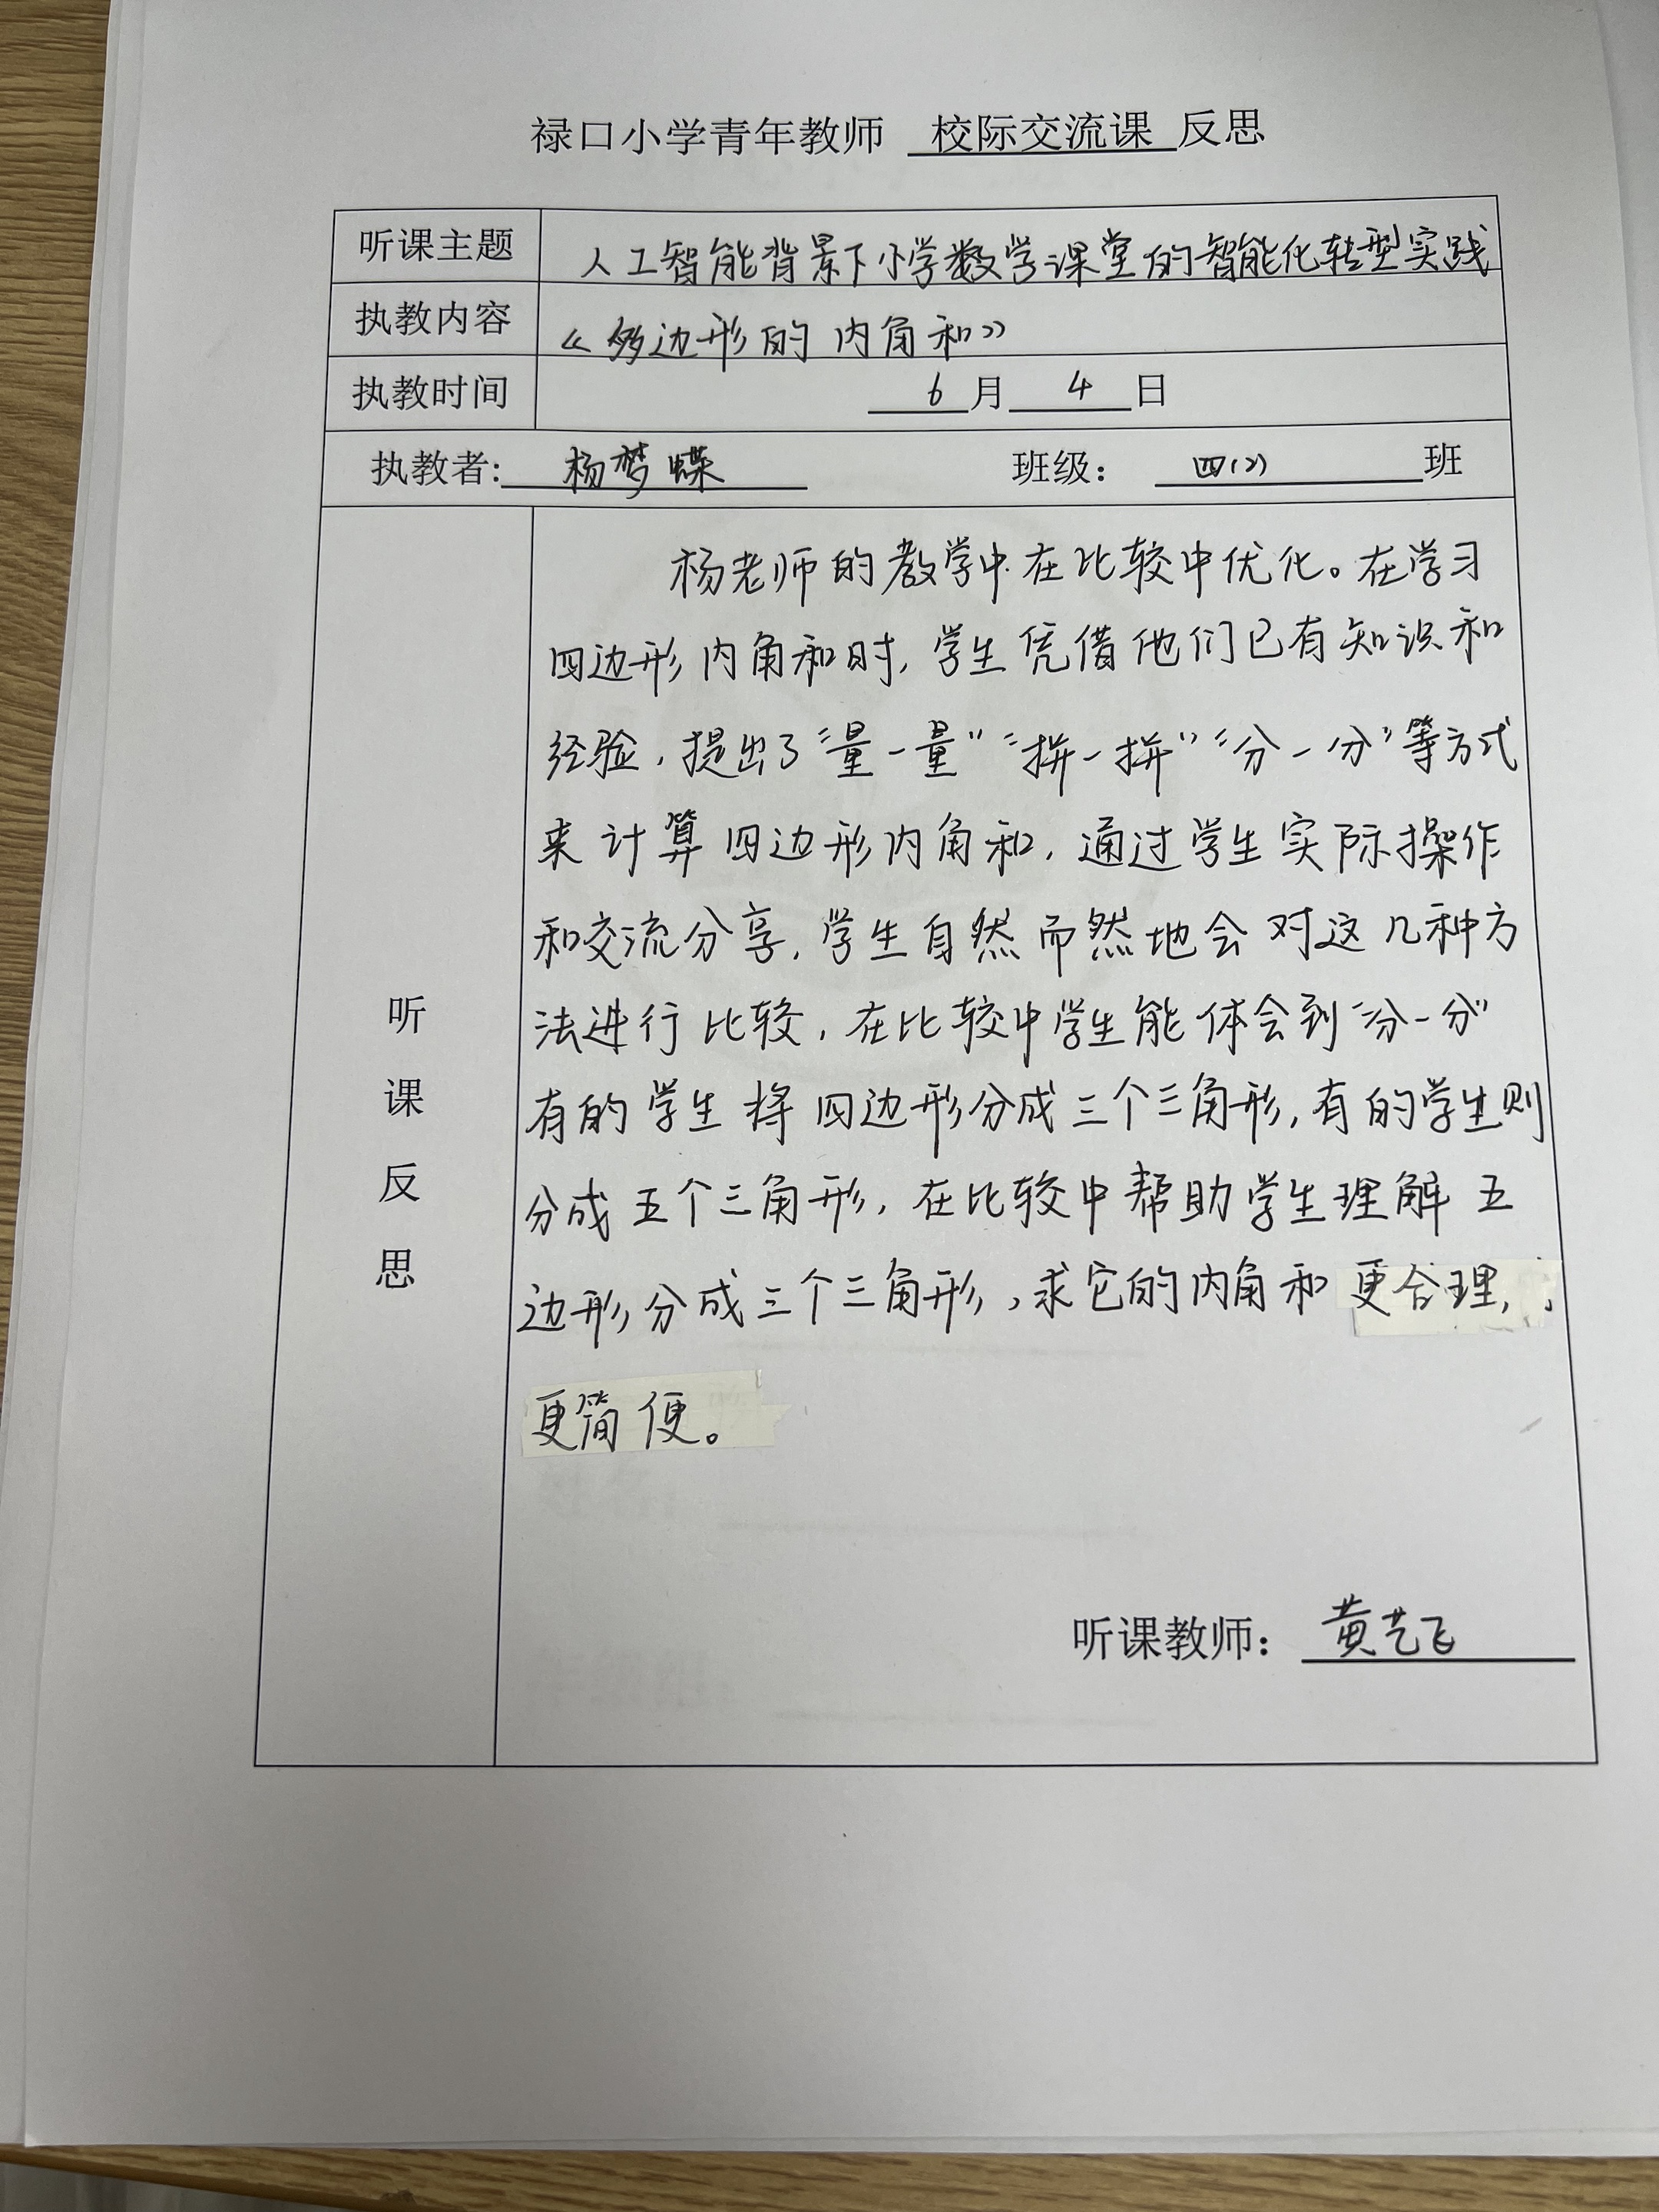 禄口小学青年教师 校际交流课 反思
听课主题 人工智能背景下小学数学课堂的智能化转型实践
执教内容 《多边形的内角和》
执教时间 6月4日
执教者: 杨梦蝶 班级： 四(2) 班
杨老师的教学中在比较中优化。在学习
四边形内角和时，学生凭借他们已有知识和
经验，提出了“量一量”“拼一拼”“分一分”等方式
来计算四边形内角和，通过学生实际操作
和交流分享，学生自然而然地会对这几种方
法进行比较，在比较中学生能体会到“分一分”
有的学生将四边形分成三个三角形，有的学生则
分成五个三角形，在比较中帮助学生理解五
边形分成三个三角形，求它的内角和更合理，
更简便。
听
课
反
思
听课教师： 黄艺飞